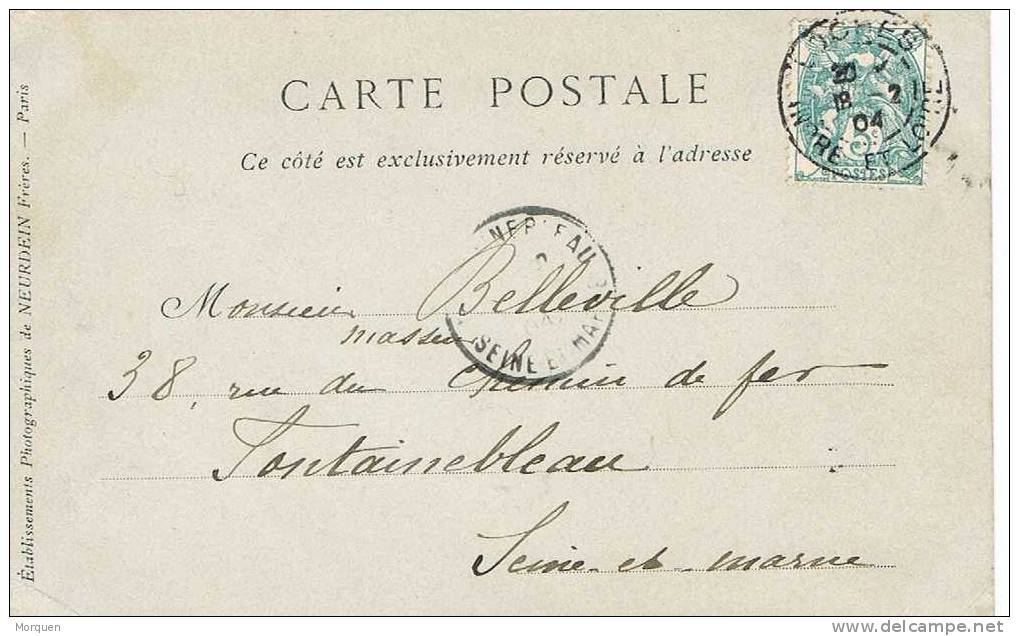 CARTE POSTALE
Ce côté est exclusivement réservé à l'adresse
LOCHES
18 -2
04
INDRE ET LOIRE
5c
POSTES
NEBLEAU
SEINE ET MA
Monsieur Belleville
masseur
38, rue du Chemin de fer
Fontainebleau
Seine et marne
Établissements Photographiques de NEURDEIN Frères. — Paris
Morquen
delcampe.net